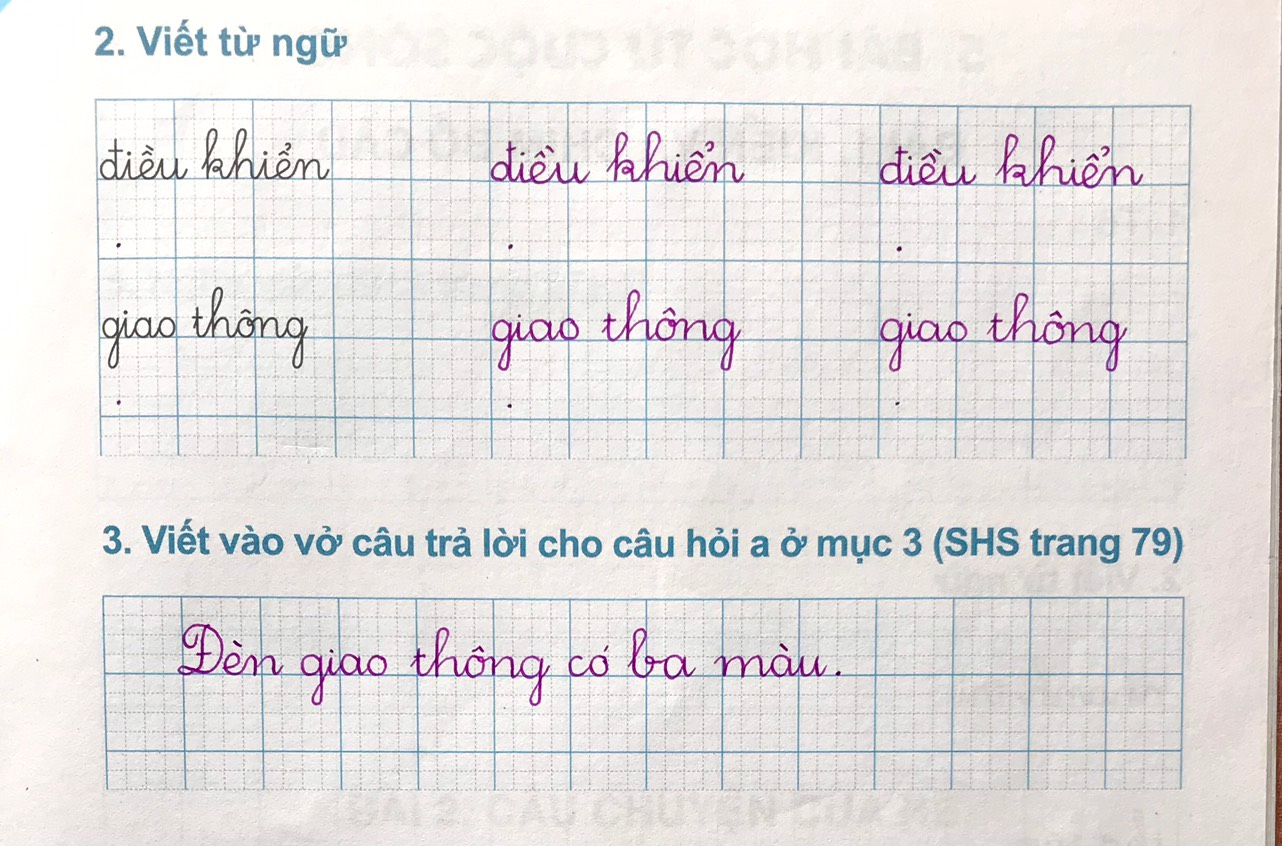 2. Viết từ ngữ
điều khiển điều khiển điều khiển
giao thông giao thông giao thông
3. Viết vào vở câu trả lời cho câu hỏi a ở mục 3 (SHS trang 79)
Đèn giao thông có ba màu.